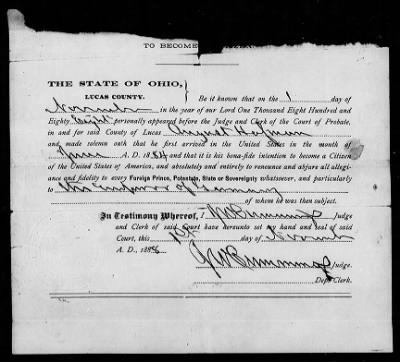 TO BECOME
THE STATE OF OHIO,
LUCAS COUNTY. Be it known that on the 1 day of
November in the year of our Lord One Thousand Eight Hundred and
Eighty Eight personally appeared before the Judge and Clerk of the Court of Probate,
in and for said County of Lucas August
and made solemn oath that he first arrived in the United States in the month of
June A. D. 1884 and that it is his bona-fide intention to become a Citizen
of the United States of America, and absolutely and entirely to renounce and abjure all allegi-
ance and fidelity to every Foreign Prince, Potentate, State or Sovereignty whatsoever, and particularly
to the Emperor of Germany
of whom he was then subject.
In Testimony Whereof, I Judge
and Clerk of said Court have hereunto set my hand and seal of said
Court, this 1st day of November
A. D., 188
Judge.
Dep. Clerk.